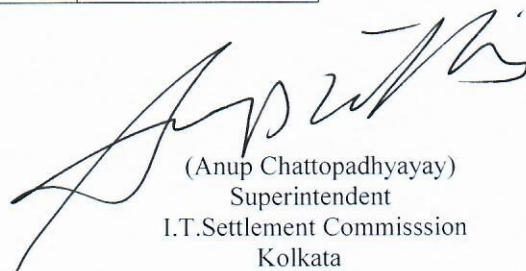 (Anup Chattopadhyayay)
Superintendent
I.T.Settlement Commisssion
Kolkata